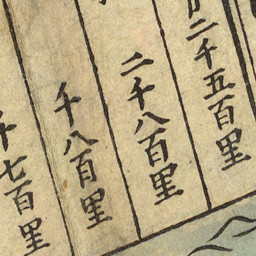 二千五百里
二千八百里
千八百里
千七百里